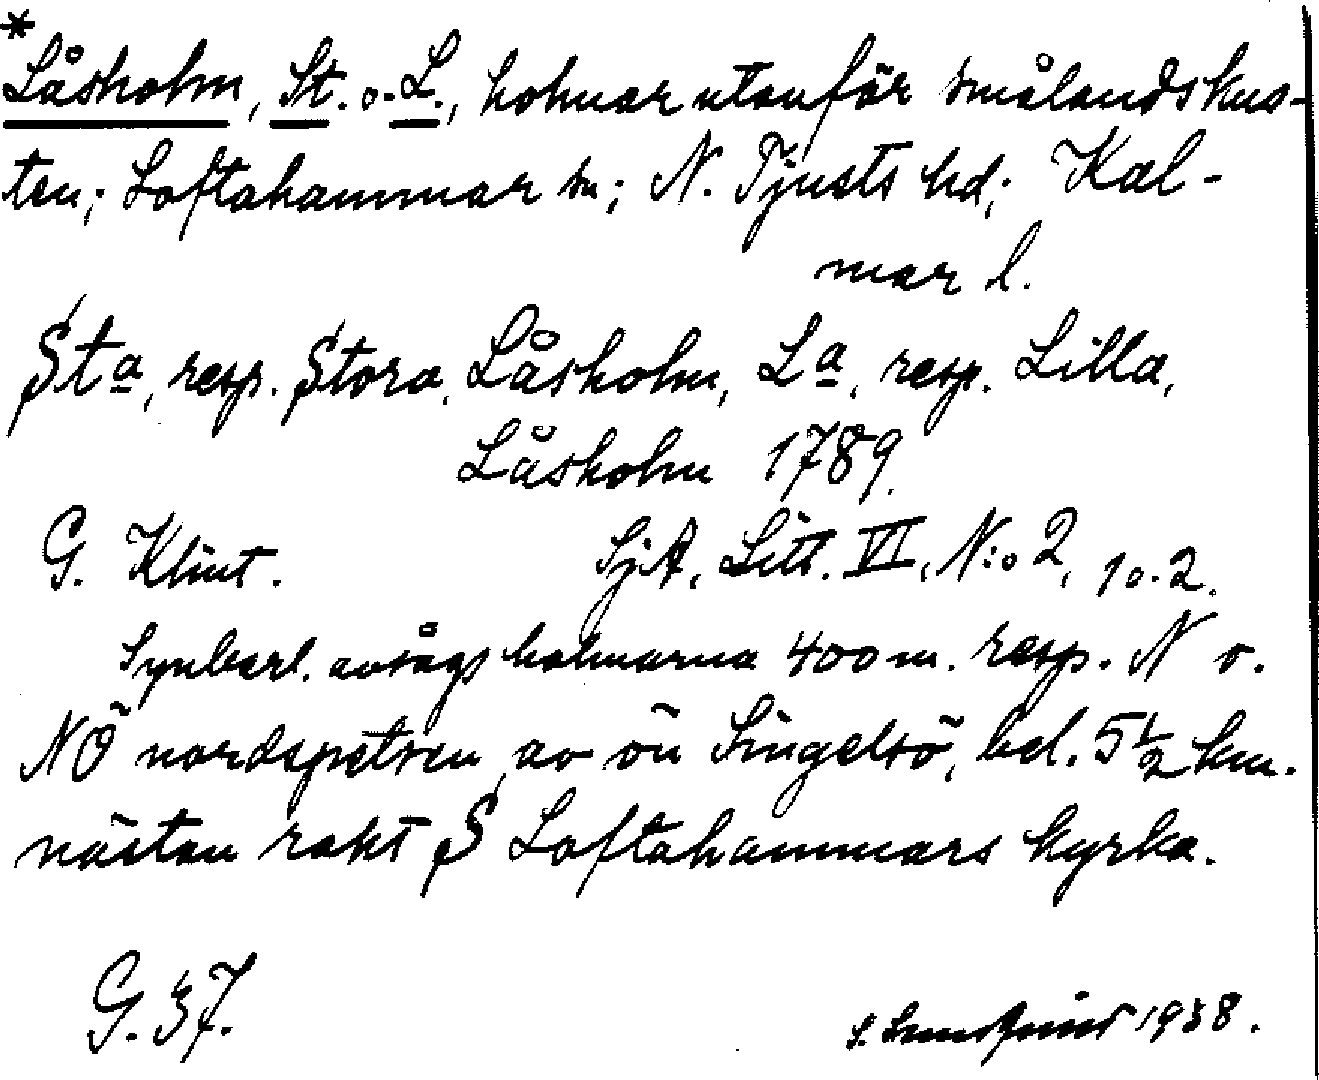 *
Låsholm, St. o. L., holmar utanför smålandskus-
ten; Loftahammar sn; N. Tjusts hd; Kal-
mar l.
Sta, resp. Stora, Låsholm, La, resp. Lilla,
Låsholm 1789.
G. Klint. SjA, Litt. VI, N:o 2, 1 o. 2.
Synbarl. avsågs holmarna 400 m. resp. N o.
NÖ nordspetsen av ön Singelsö, bel. 5 1/2 km.
nästan rakt S Loftahammars kyrka.
G. 37. S. 1938.